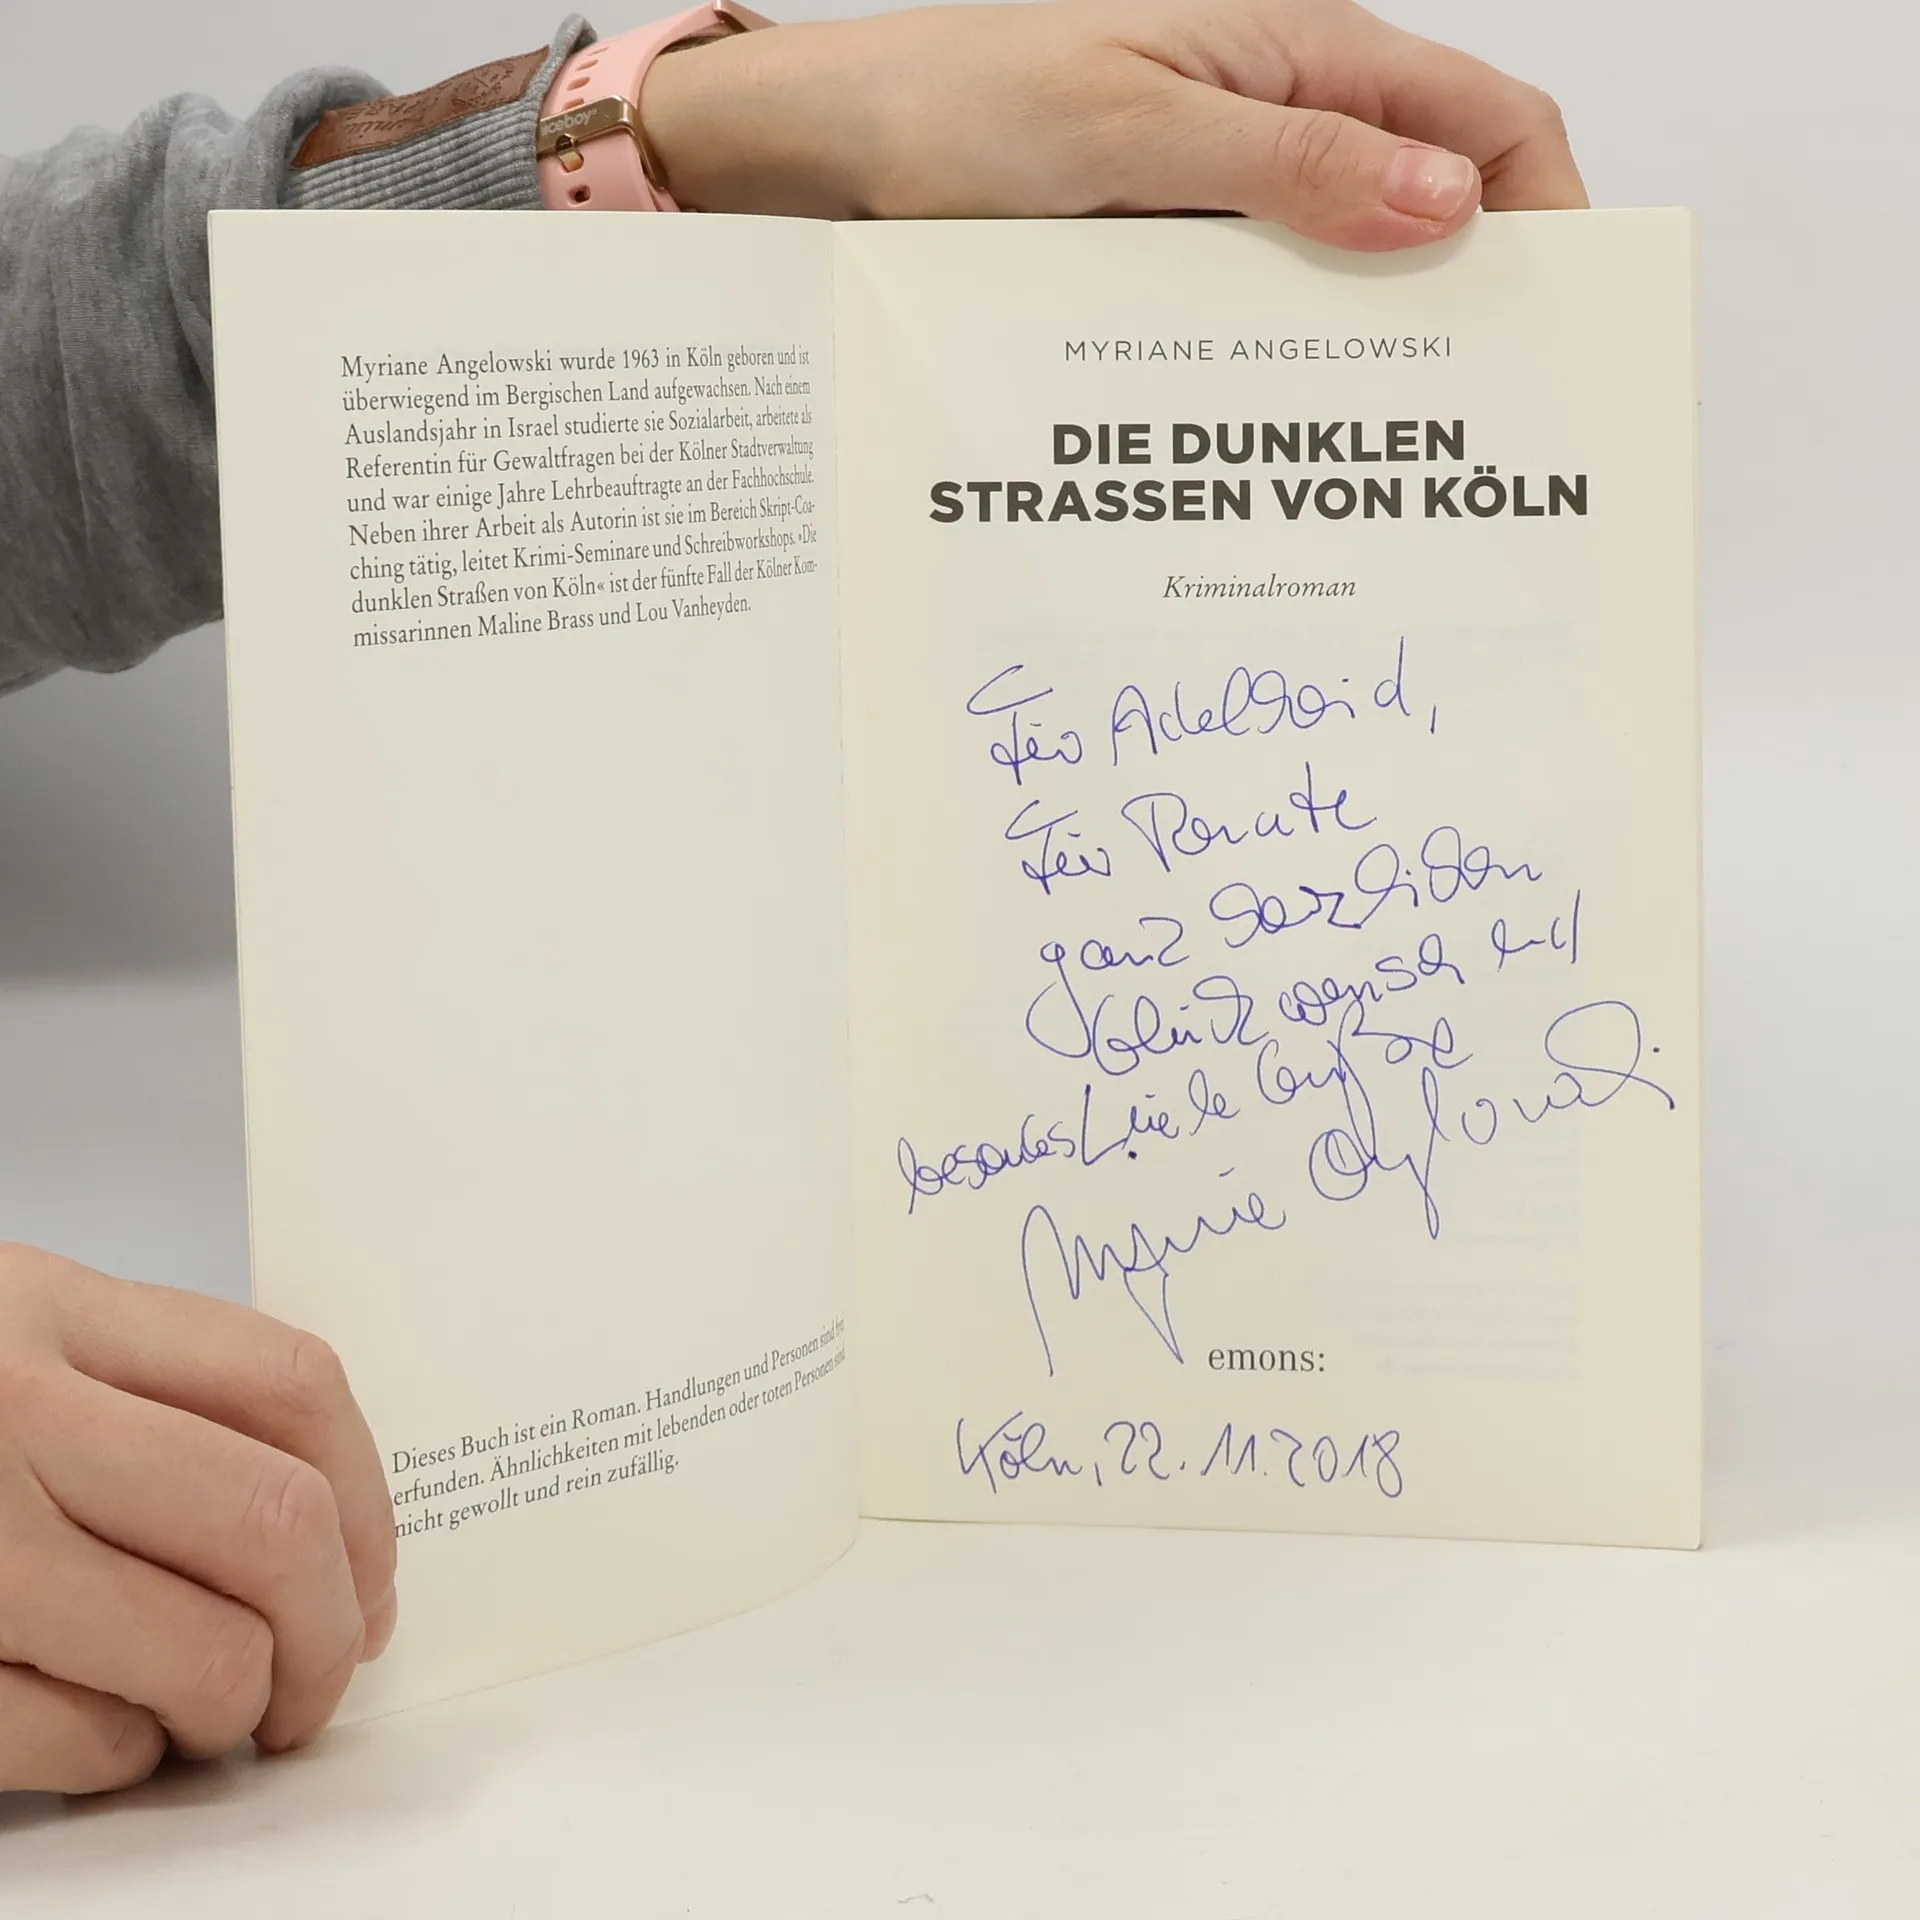 Myriane Angelowski wurde 1963 in Köln geboren und ist
überwiegend im Bergischen Land aufgewachsen. Nach einem
Auslandsjahr in Israel studierte sie Sozialarbeit, arbeitete als
Referentin für Gewaltfragen bei der Kölner Stadtverwaltung
und war einige Jahre Lehrbeauftragte an der Fachhochschule.
Neben ihrer Arbeit als Autorin ist sie im Bereich Skript-Coa-
ching tätig, leitet Krimi-Seminare und Schreibworkshops. »Die
dunklen Straßen von Köln« ist der fünfte Fall der Kölner Kom-
missarinnen Maline Brass und Lou Vanheyden.
Dieses Buch ist ein Roman. Handlungen und Personen sind
erfunden. Ähnlichkeiten mit lebenden oder toten Personen sind
nicht gewollt und rein zufällig.
MYRIANE ANGELOWSKI
DIE DUNKLEN
STRASSEN VON KÖLN
Kriminalroman
Für Adelheid,
Für Renate
ganz herzlichen
Glückwunsch und
besonders liebe Grüße
Myriane Angelowski
emons:
Köln, 22.11.2018